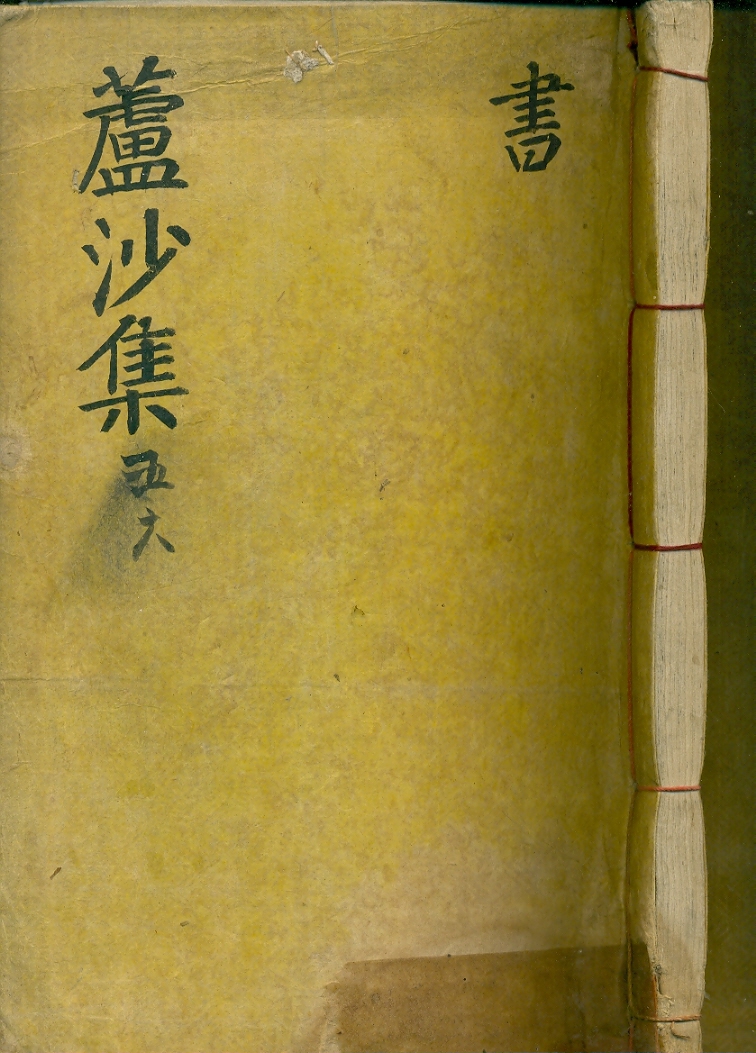 書
蘆沙集 五六